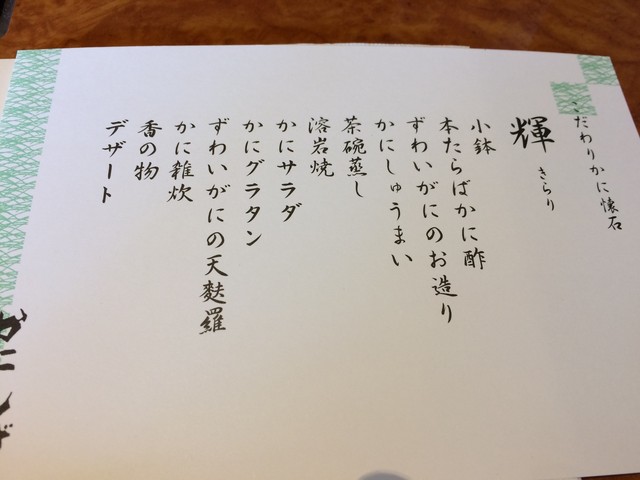 こだわりかに懐石
輝
きらり
小鉢
本たらばかに酢
ずわいがにのお造り
かにしゅうまい
茶碗蒸し
溶岩焼
かにサラダ
かにグラタン
ずわいがにの天麩羅
かに雑炊
香の物
デザート